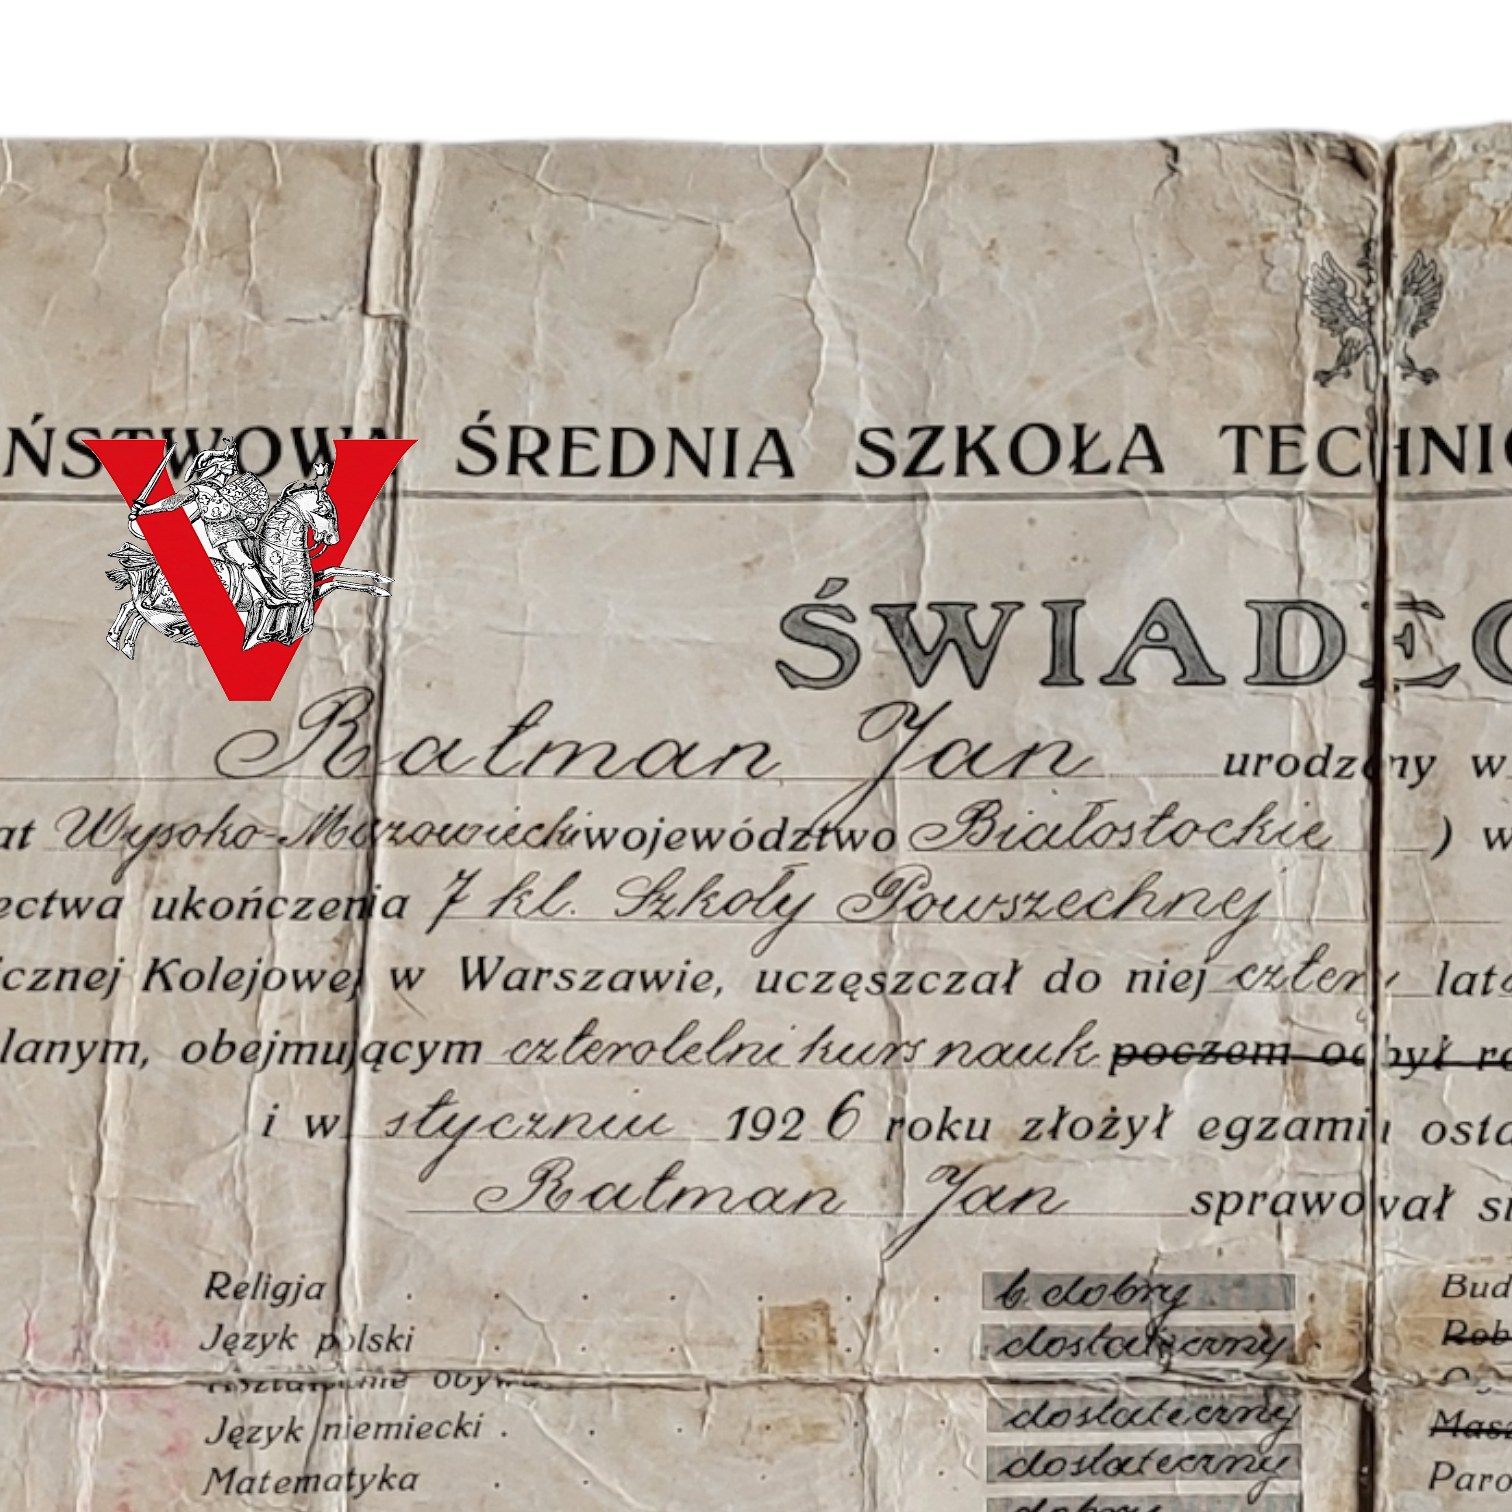 ŃSTWOWA ŚREDNIA SZKOŁA TECHNIC
V
ŚWIADEC
Ratman Jan urodzony w
at Wysoko-Mazowiecki województwo Białostockie ) w
ectwa ukończenia 7 kl. Szkoły Powszechnej
icznej Kolejowej w Warszawie, uczęszczał do niej cztery lata
lanym, obejmującym czteroletni kurs nauk poczem odbył ro
i w styczniu 1926 roku złożył egzamin osta
Ratman Jan sprawował si
Religja . . . . . . . b. dobry . Bud
Język polski . . . dostateczny Rob
Język niemiecki . . . . . . dostateczny Masz
Matematyka . . . . . . dostateczny Paro
dobry